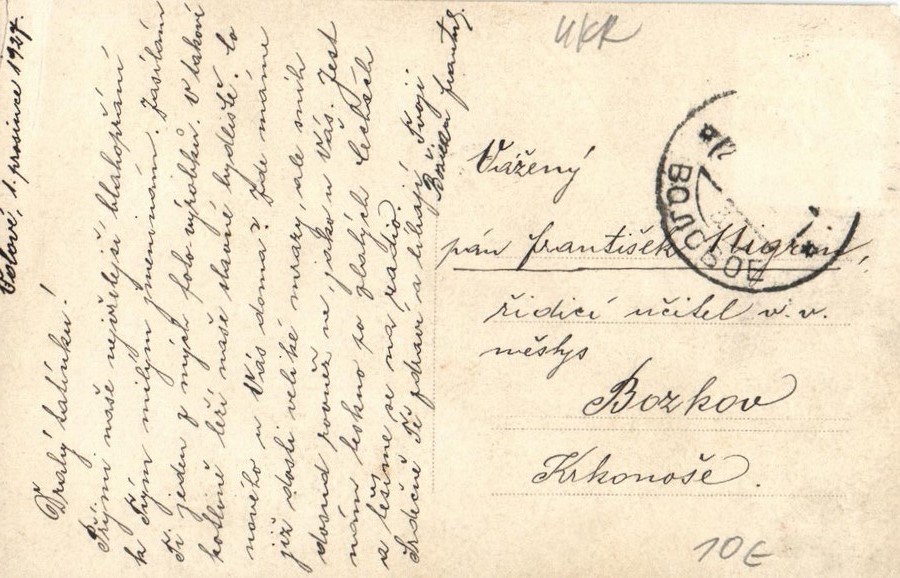 Volové, 1. prosince 1927.
Drahý tatínku!
Přijmi naše nejvřelejší blahopřání
k Tvým milým jmeninám. Zasílám
Ti jeden z mých foto výrobků. V takové
kotlině leží naše slavné bydliště. Co
nového u Vás doma? Zde máme
již dosti veliké mrazy, ale sníh
dosud rovněž ne, jako u Vás. Jest
nám teskno po zlatých Čechách
a těšíme se na radio.
Srdečně Tě zdraví a líbají Tvoji
Božena Frantíg.
UKR
Vážený
pán František,
řídící učitel v. v.
městys
Bozkov
Krkonoše.
ВОЛОВОЕ
10€